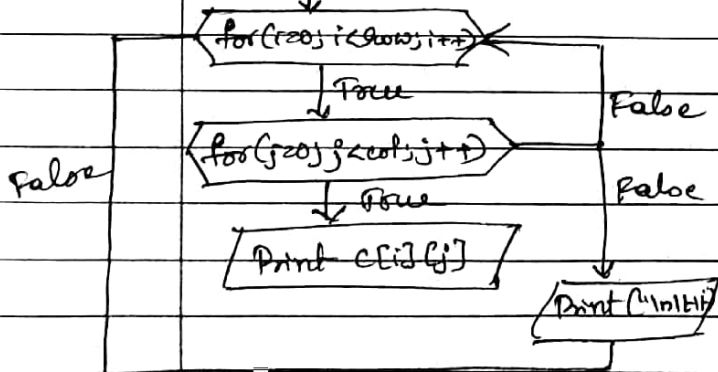 for(i=0; i<row; i++)
True
False
for(j=0; j<col; j++)
False
True
False
Print C[i][j]
Print ("\n\t\t